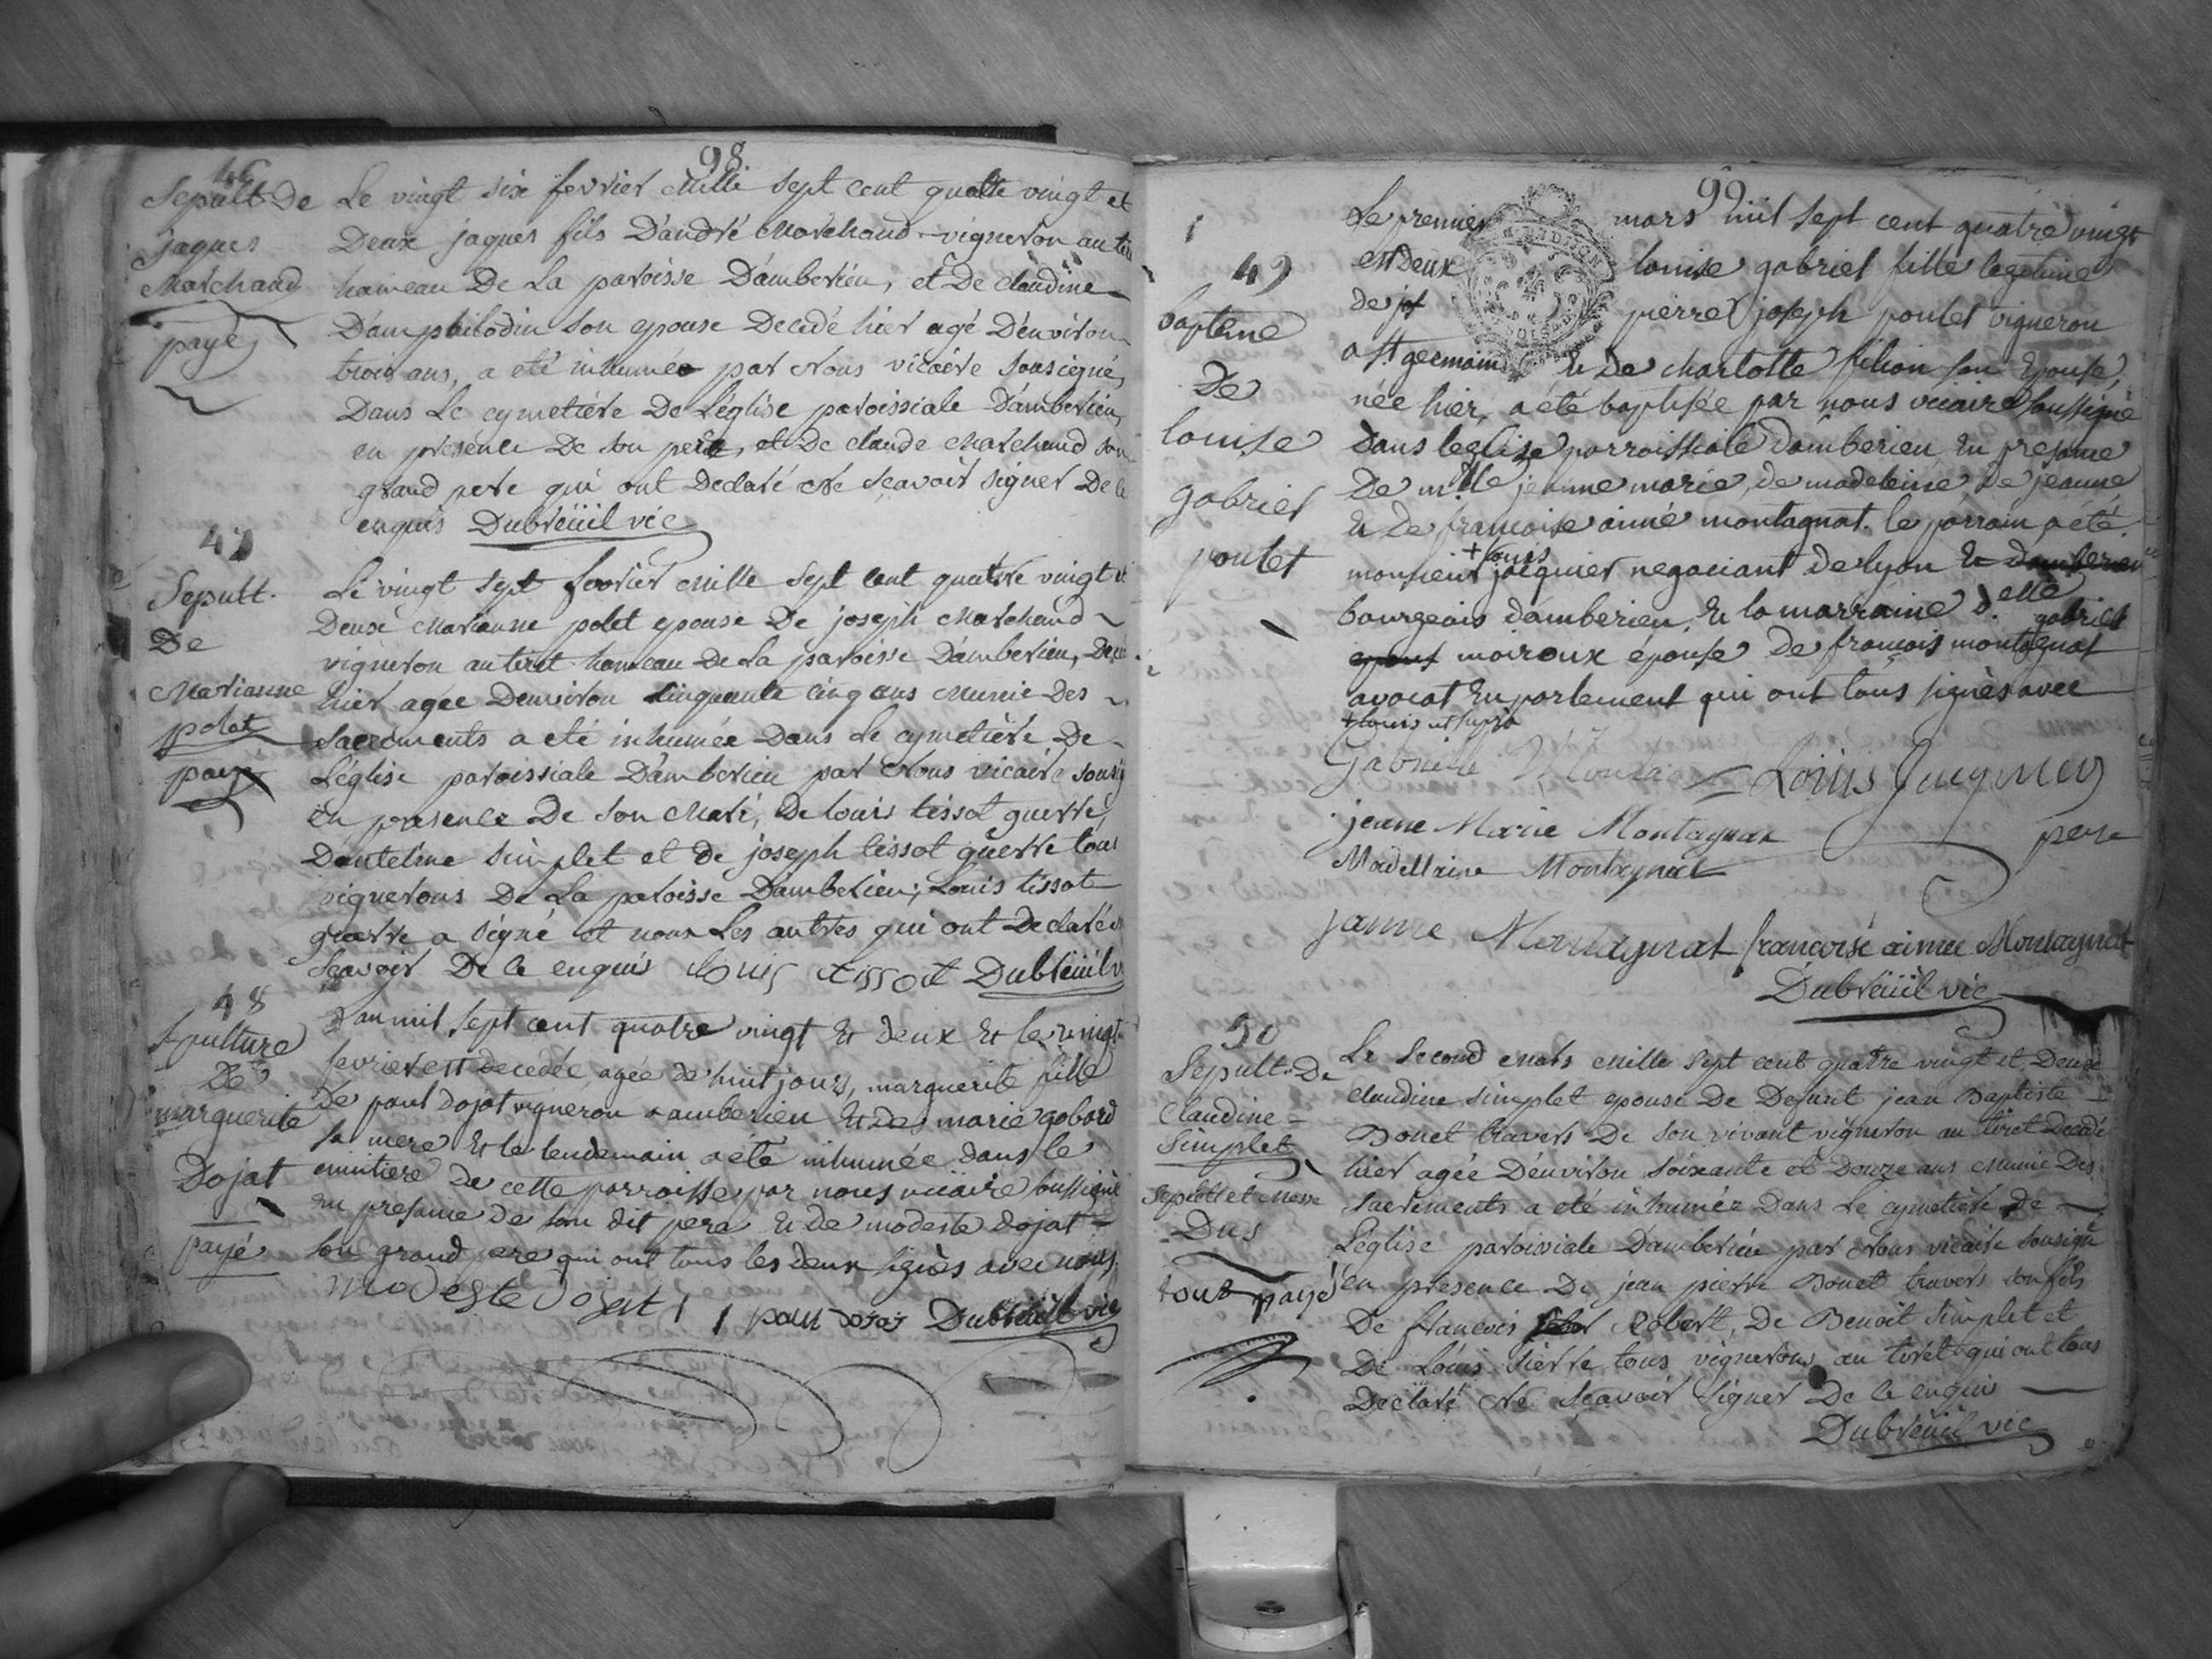 98
46
Sepult De
jaques
Marchand
payé
Le vingt six fevrier Mille sept cent quatre vingt et
Deux jaques fils D'andré Marchand vigneron au
hameau De La paroisse D'amberieu, et De claudine
son epouse Decedé hier agé D'environ
trois ans, a eté inhumé par Nous vicaire sousigné
Dans Le cymetiére De L'église paroissiale D'amberieu,
en presence De son pere, et De claude Marchand son
grand pere qui ont Declaré Ne sçavoir signer De ce
enquis Dubreüil vic
47
Sepult.
De
Marianne
polet
paye
Le vingt sept fevrier Mille sept cent quatre vingt et
Deux Marianne polet epouse De joseph Marchand
vigneron au tiret hameau De La paroisse D'amberieu,
hier agée Denviron cinquante cinq ans Munie Des
Sacrements a eté inhumée Dans Le cymetiére De
L'église paroissiale D'amberieu par Nous vicaire
en presence De son Mari, De Louis tissot guerre,
D'antelme simplet et de joseph tissot guerre tous
vignerons De La paroisse D'amberieu; Louis tissot
guerre a signé et non Les autres qui ont Declaré
sçavoir De ce enquis Louis tissot Dubreüil
48
Sepulture
De
marguerite
Dojat
payé
L'an mil sept cent quatre vingt et deux et le vingt
fevrier est decedée agée de huit jours, marguerite fille
De paul dojat vigneron a amberieu et De marie gobard
sa mere et le lendemain a été inhumée dans le
cimitiere De cette parroisse par nous vicaire soussigné
en presance de son dit pere et de modeste dojat
son grand pere qui ont tous les deux signès avec nous
modeste dojat paul dojat Dubreüil vic
99
49
bapteme
De
louise
gabriel
poulet
Le premier mars mil sept cent quatre vingt
et Deux louise gabriel fille legitime
de pierre joseph poulet vigneron
a st germain et de charlotte filion son epouse,
née hier, a été baptisée par nous vicaire soussigné
dans leglise parroissiale damberieu en presance
De mlle jeanne marie, de madeleine, de jeanne
et de francoise aimé montagnat. le parrain a été
+ louis
monsieur jacquier negociant de lyon et damberieu
bourgeois damberieu, et la marraine delle
gabriel
epous moiroux épouse De francois montagnat
avocat en parlement qui ont tous signès avec
+ louis ut supra
Gabrielle Louis Jacquier
jeanne Marie Montagnat pere
Madellaine Montagnat
janne Montagnat francoise aimee Montagnat
Dubreüil vic
50
Sepult. De
Claudine
Simplet
Sepult et Messe
Dus
tout payé
Le second Mars Mille sept cent quatre vingt et Deux
claudine simplet epouse De Defunt jean Baptiste
Bonet travers De son vivant vigneron au tiret Decedé
hier agée D'environ soixante et Douze ans Munie Des
sacrements a eté inhumée Dans Le cymetiére De
L'église paroissiale D'amberieu par Nous vicaire sousigné
en presence De jean pierre Bonet travers son fils
De francois Robert, De Benoit simplet et
De Louis tous vignerons au tiret qui ont tous
Declaré Ne sçavoir signer De ce enquis
Dubreüil vic